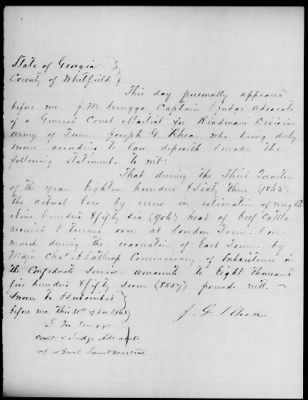 State of Georgia }
County of Whitfield }
This day personally appeared
before me J. M. Scruggs Captain & Judge Advocate
of a General Court Martial for Hindmans Division
Army of Tenn. Joseph G. Rhea who being duly
sworn according to law, deposeth & makes the
following statement. to wit:
That during the Third Quarter
of the year Eighteen hundred & Sixty three (1863)
the actual loss by error in estimation of weights
Nine hundred & fifty six (956) head of Beef Cattle
received & turned over at Loudon Tenn. & on
march during the evacuation of East Tenn. by
Major Chas. A. Lathrop Commissary of Subsistence in
the Confederate Service amounts to Eight Thousand
five hundred & fifty seven (8557) pounds nett.
Sworn to & subscribed
before me this 20th of 1863
J. G. Rhea
J. M. Scruggs
Capt & Judge Advocate
of Genl Court Martial